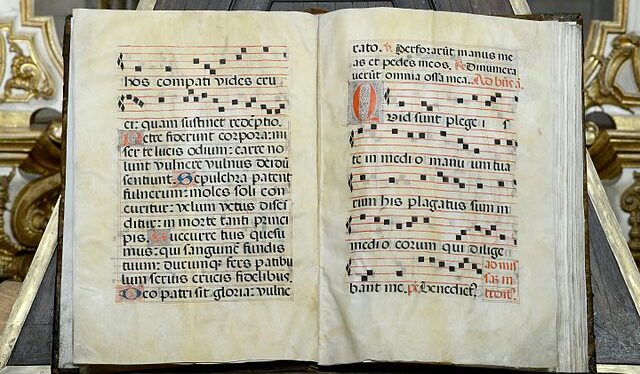 hos compati vides cru
ci: quam sustinet redēptio.
Petre fiderint corpora: mi
ser te lucis odium: carce no
lunt vulnere vulnus deidū
sentiunt. Sepulchra patent
fulnerum: moles soli con
cutitur: velum vetus disci
ditur: in morte tanti princi
pis. Succurre tuis quesu
mus: qui sanguinē fundis
tuum: durumq; fers patibu
lum servis crucis fidelibus.
Deo patri sit gloria: vulne
rato. v. Perforarūt manus me
as et pedes meos. R. Dinumera
verūt omnia ossa mea. Ad būc. a.
Quid sunt plege is
te in medio manuum tua
rum his plagatus sum in
medio eorum qui dilige
bant me. ps. Benedictˀ.
ad mis
sā: in
troitˀ.